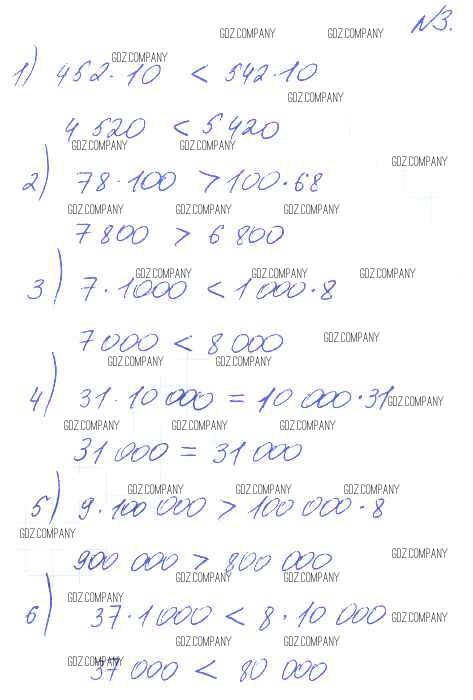 №3.
GDZ.COMPANY GDZ.COMPANY
GDZ.COMPANY
1) 452·10 < 542·10
GDZ.COMPANY
4 520 < 5 420
GDZ.COMPANY GDZ.COMPANY
GDZ.COMPANY
2) 78·100 > 100·68
GDZ.COMPANY GDZ.COMPANY GDZ.COMPANY
7 800 > 6 800
GDZ.COMPANY GDZ.COMPANY GDZ.COMPANY
3) 7·1000 < 1 000·8
7 000 < 8 000
GDZ.COMPANY
GDZ.COMPANY GDZ.COMPANY
4) 31·10 000 = 10 000·31
GDZ.COMPANY
GDZ.COMPANY GDZ.COMPANY GDZ.COMPANY
31 000 = 31 000
GDZ.COMPANY GDZ.COMPANY GDZ.COMPANY
5) 9·100 000 > 100 000·8
GDZ.COMPANY
900 000 > 800 000
GDZ.COMPANY
GDZ.COMPANY GDZ.COMPANY
GDZ.COMPANY
6) 37·1 000 < 8·10 000
GDZ.COMPANY
GDZ.COMPANY GDZ.COMPANY
GDZ.COMPANY
37 000 < 80 000